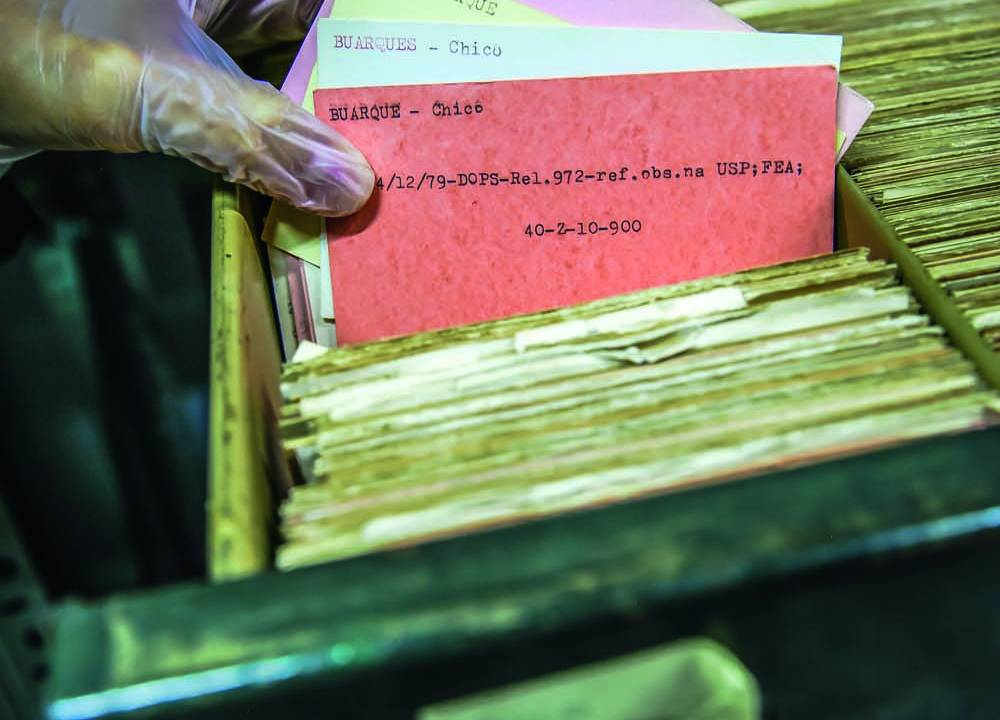 RQUE
BUARQUES - Chico
BUARQUE - Chico
4/12/79-DOPS-Rel.972-ref.obs.na USP;FEA;
40-Z-10-900